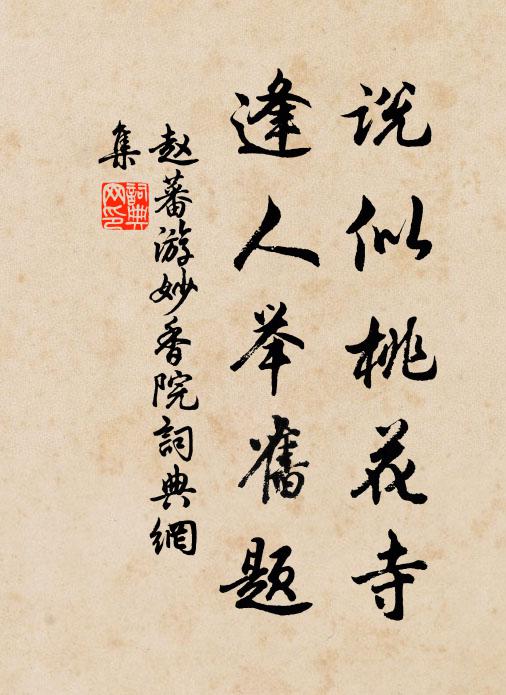 说似桃花寺
逢人举舊题
赵蕃游妙香院詞典網
集
詞典
网印